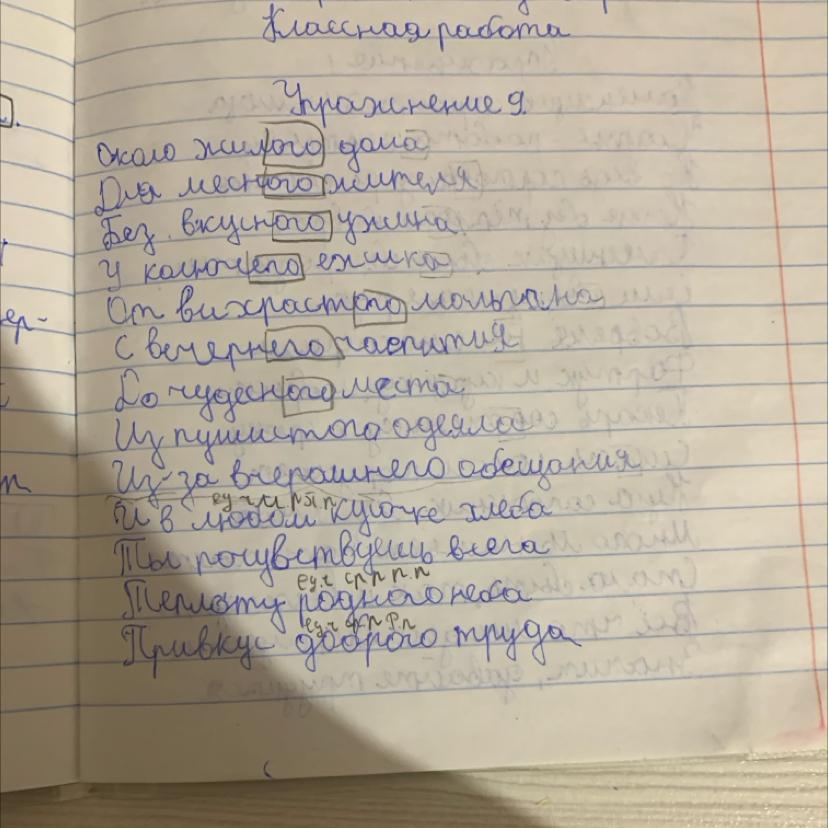 Классная работа
Упражнение 9.
Около жилого дома
Для месного жителя
Без вкусного ужина
У колючего ежика
От вихрастого мальчика
С вечернего чаепития
До чудесного места
Из пушистого одеяла
Из-за вчерашнего обещания
И в любом кусочке хлеба
Ты почувствуешь всега
ед.ч ср.п п.п
Теплоту родного неба
Привкус доброго труда
ер-